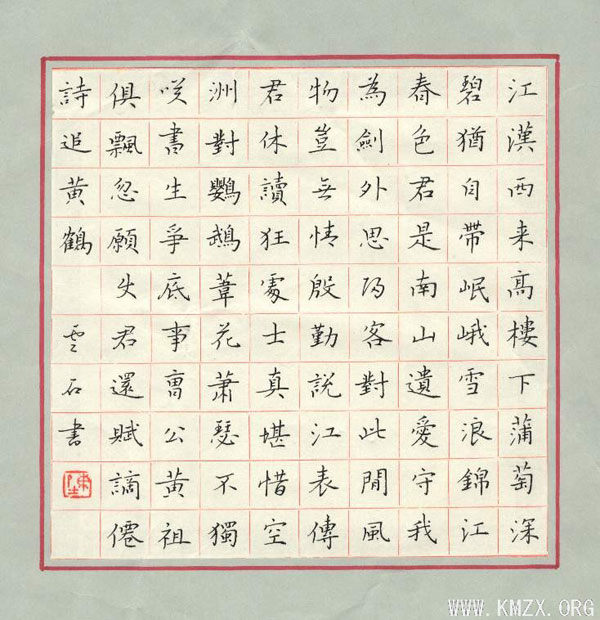 江漢西来高樓下蒲萄深
碧猶自帶岷峨雪浪錦江
春色君是南山遺愛守我
為劍外思歸客對此閒風
物豈无情殷勤說江表傳
君休讀狂處士真堪惜空
洲對鸚鵡葦花蕭瑟不獨
咲書生爭底事曹公黃祖
俱飄忽願使君還賦謫僊
詩追黃鶴 雲石書
WWW.KMZX.ORG